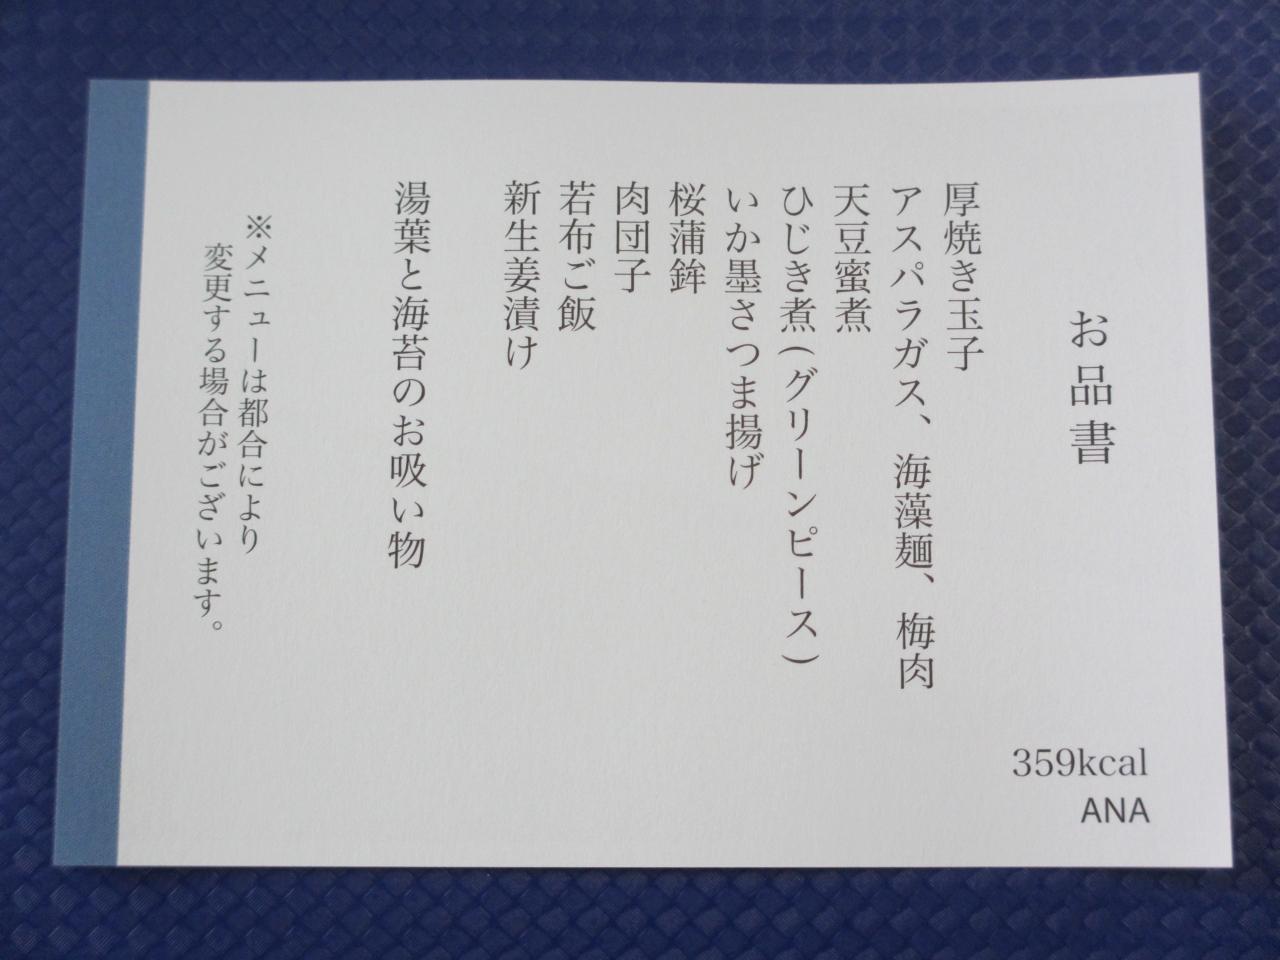 お品書
厚焼き玉子
アスパラガス、海藻麺、梅肉
天豆蜜煮
ひじき煮(グリーンピース)
いか墨さつま揚げ
桜蒲鉾
肉団子
若布ご飯
新生姜漬け
湯葉と海苔のお吸い物
※メニューは都合により
変更する場合がございます。
359kcal
ANA